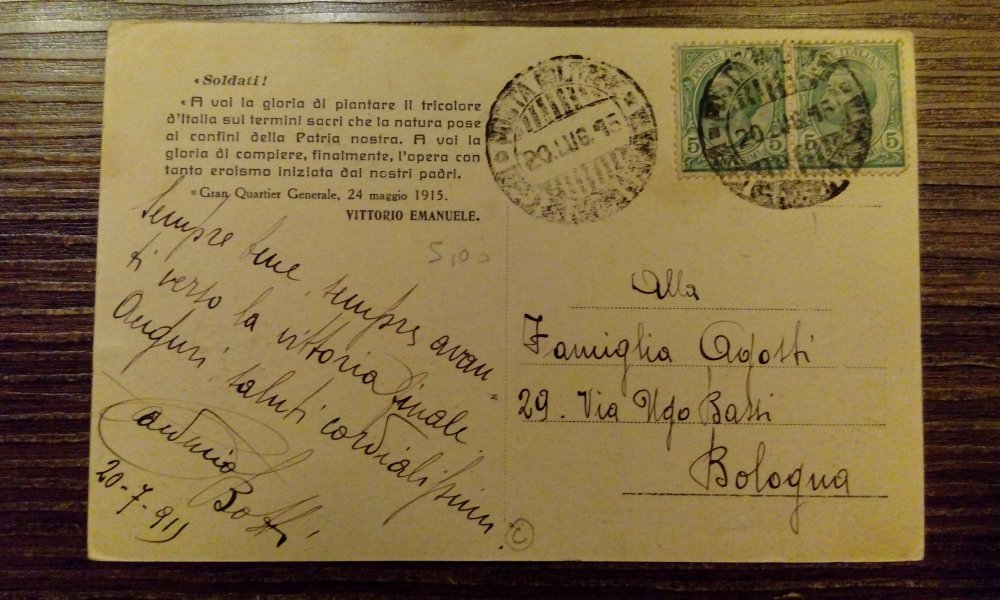 «Soldati!
«A voi la gloria di piantare il tricolore
d'Italia sui termini sacri che la natura pose
ai confini della Patria nostra. A voi la
gloria di compiere, finalmente, l'opera con
tanto eroismo iniziata dai nostri padri.
«Gran Quartier Generale, 24 maggio 1915.
VITTORIO EMANUELE.
Sempre bene, sempre avan=
ti verso la vittoria finale
Auguri, saluti cordialissimi
Bossi
20-7-915
5,00
C
POSTA MILITARE
20.LUG.15
POSTE ITALIANE
POSTE ITALIANE
5 5
5 5
20.LUG.15
Alla
Famiglia Agosti
29. Via Ugo Bassi
Bologna